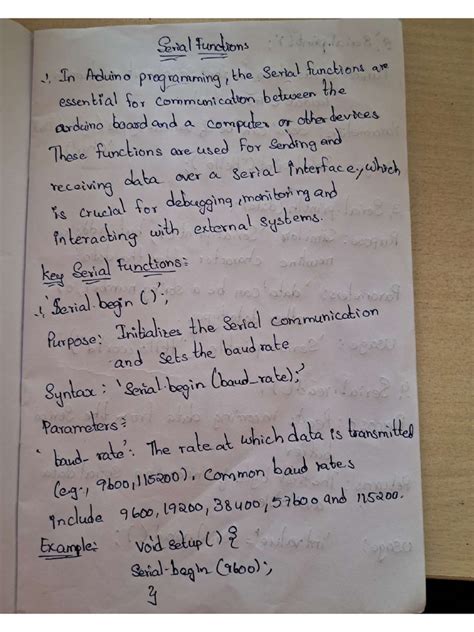 Serial Functions
∴ In Arduino programming, the Serial functions are
essential for communication between the
arduino board and a computer or other devices
These functions are used for Sending and
receiving data over a serial interface, which
is crucial for debugging, monitoring and
interacting with external systems.
Key Serial Functions:
∴ 'Serial.begin ()';
Purpose: Initializes the Serial communication
and sets the baud rate
Syntax : 'Serial.begin (baud_rate);'
Parameters:
'baud_rate': The rate at which data is transmitted
(eg., 9600, 115200). Common baud rates
include 9600, 19200, 38400, 57600 and 115200.
Example: void setup () {
Serial.begin (9600);
}